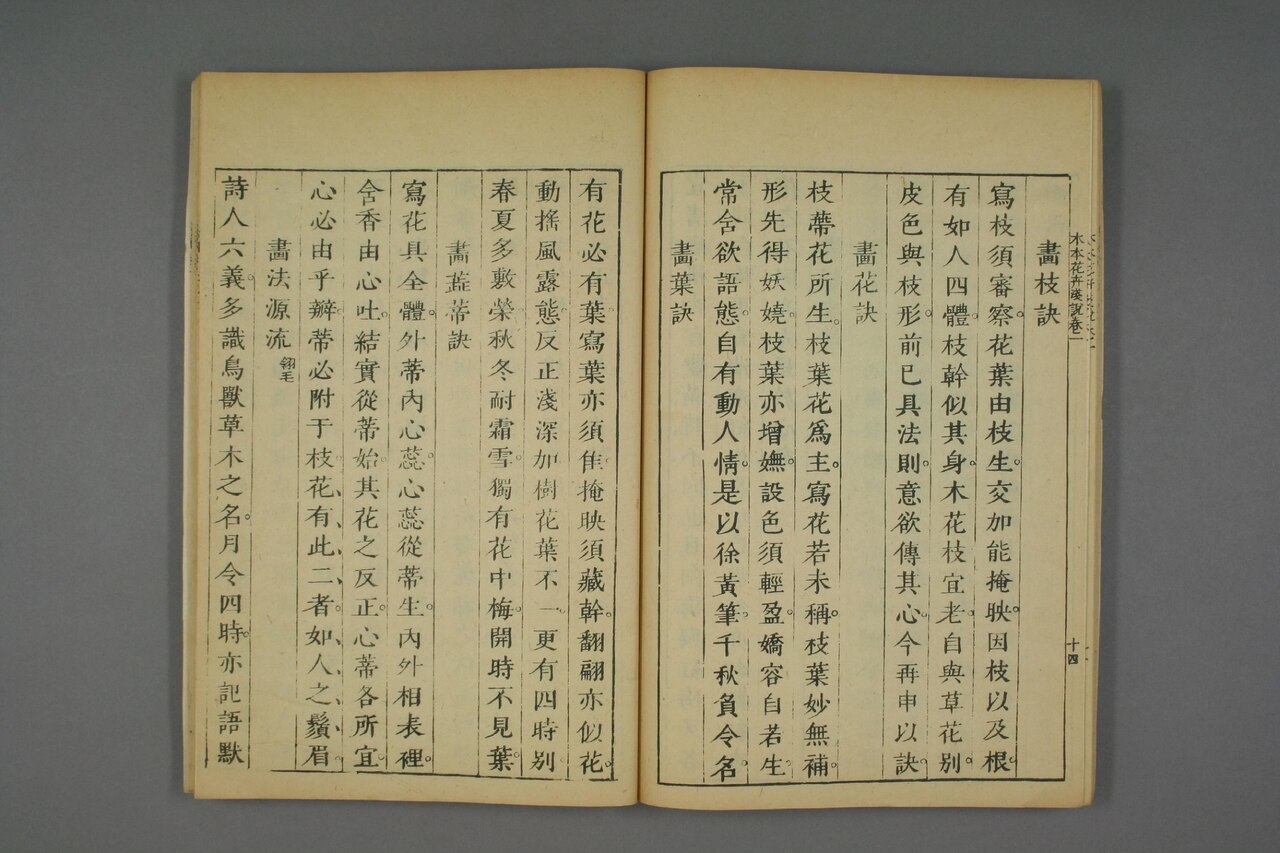 木本花卉淺說卷二
十四
畫枝訣
寫枝須審察。花葉由枝生。交加能掩映。因枝以及根。
有如人四體。枝幹似其身。木花枝宜老。自與草花别。
皮色與枝形。前已具法則。意欲傳其心。今再申以訣。
畫花訣
枝蔕花所生。枝葉花爲主。寫花若未稱。枝葉妙無補。
形先得妖嬈。枝葉亦增嫵。設色須輕盈。嬌容自若生。
常舍欲語態。自有動人情。是以徐黃筆。千秋負令名。
畫葉訣
有花必有葉。寫葉亦須隹。掩映須藏幹。翻翩亦似花。
動搖風露態。反正淺深加。樹花葉不一。更有四時别。
春夏多敷榮。秋冬耐霜雪。獨有花中梅。開時不見葉。
畫蕋蒂訣
寫花具全體。外蒂內心蕊。心蕊從蒂生。內外相表裡。
舍香由心吐。結實從蒂始。其花之反正。心蒂各所宜。
心必由乎瓣。蒂必附于枝。花有此二者。如人之鬚眉。
畫法源流 翎毛
詩人六義。多識鳥獸草木之名。月令四時。亦記語默